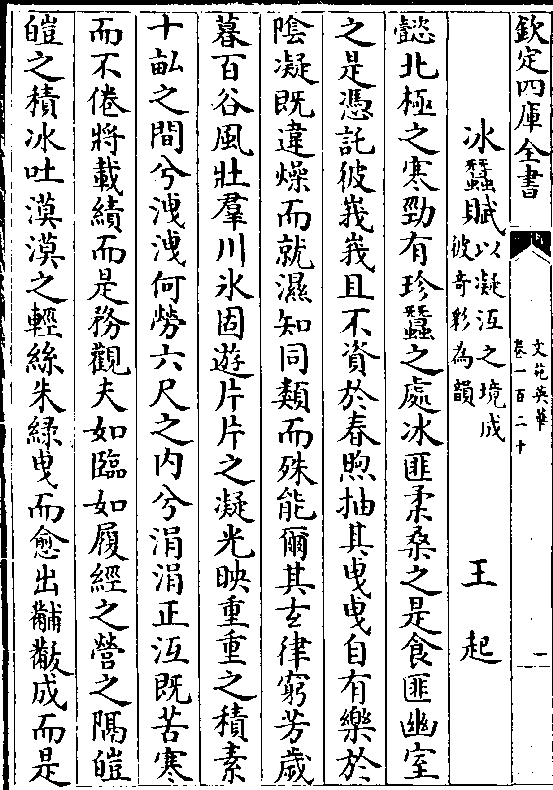 欽定四庫全書
文苑英華
卷一百二十
一
冰蠶賦以凝沍之境成彼奇彩為韻
王起
懿北極之寒勁有珍蠶之處冰匪柔桑之是食匪幽室
之是憑託彼峩峩且不資於春煦抽其曵曵自有樂於
陰凝既違燥而就濕知同類而殊能爾其玄律窮芳歲
暮百谷風壯羣川氷固遊片片之凝光映重重之積素
十畝之間兮洩洩何勞六尺之内兮涓涓正沍既苦寒
而不倦將載績而是務觀夫如臨如履經之營之隔皚
皚之積冰吐漠漠之輕絲朱綠曵而愈出黼黻成而是